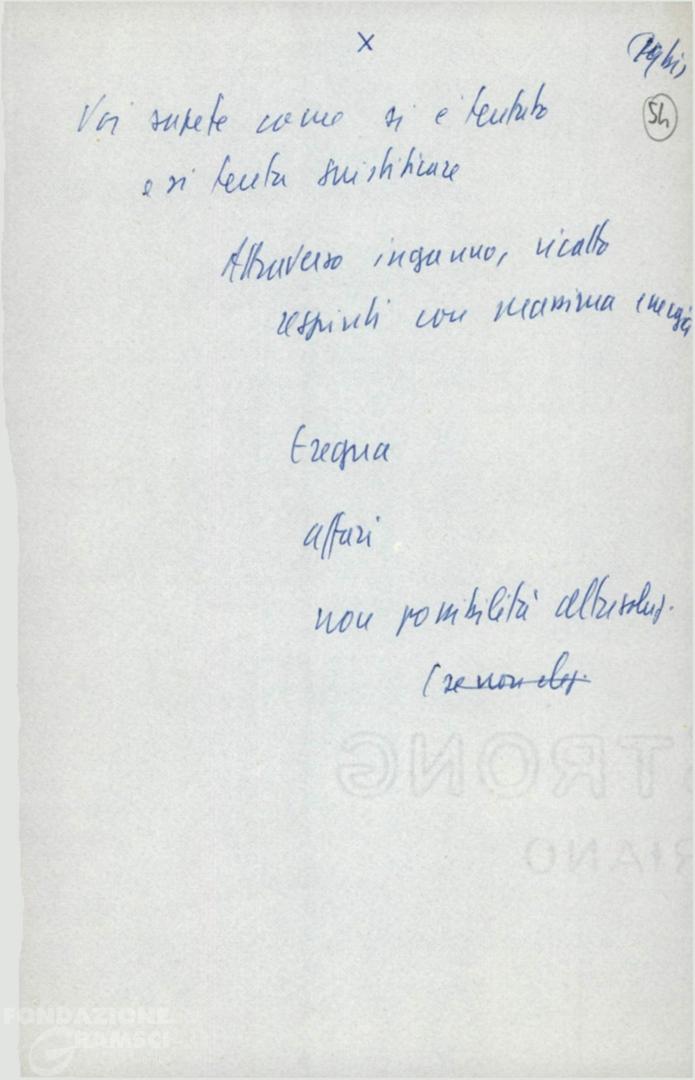 x
54
Voi sapete come si è tentato
e si tenta mistificare
Attraverso inganno, ricatto
respinti con massima energia
Tregua
affari
non possibilità altre soluz.
(se non
STRONG
RIANO
FONDAZIONE
GRAMSCI